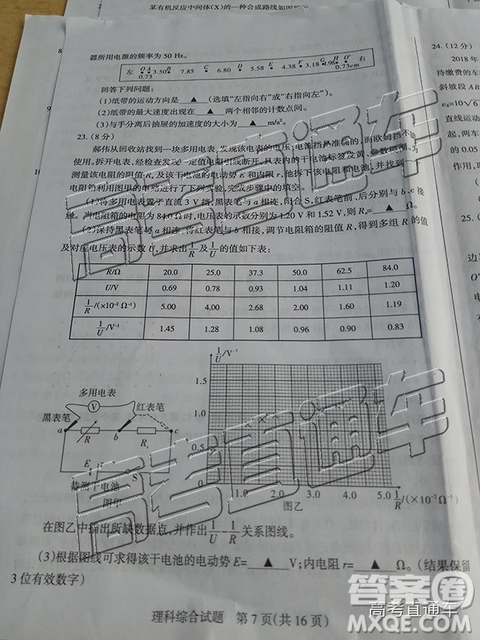 某有机反应中间体(X)的一种合成路线如图
器所用电源的频率为 50 Hz。
左 O A 3.50 7.85 6.80 5.88 4.38 3.18 1.98 右
0.73 0.73cm
回答下列问题:
(1)纸带的运动方向是 ▲ (选填“左指向右”或“右指向左”)。
(2)纸带的最大速度出现在 ▲ 两个相邻的计数点间。
(3)与手分离后抽屉的加速度的大小为 ▲ m/s²。
23.(8分)
郝伟从回收站找到一块多用电表,发现该电表的电压、电流挡
使用,拆开电表,经检查发现一定值电阻引线断开,且表内的干电池
测量该电阻的阻值r,及该干电池的电动势E和内阻r,他拆下该电阻和电池,并找到
电阻箱利用图甲的电路进行了下列实验,完成步骤中的填空。
(1)将多用电表置于直流 3 V 挡,黑表笔与 a 相连,闭合 S,红表笔前、后分别与 b、c 接
触。当电阻箱的电阻为 84.0 Ω 时,电压表的示数分别为 1.20 V 和 1.52 V,则 Rₓ= ▲ Ω。
(2)保持黑表笔与 a 相连,将红表笔与 b 相接,调节电阻箱的阻值 R,得到多组 R 的值
及对应电压表的示数 U,并求出 1/R 及 1/U 的值如下表:
R/Ω 20.0 25.0 37.3 50.0 62.5 84.0
U/V 0.69 0.78 0.93 1.04 1.11 1.20
1/R/(×10⁻² Ω⁻¹) 5.00 4.00 2.68 2.00 1.60 1.19
1/U/V⁻¹ 1.45 1.28 1.08 0.96 0.90 0.83
多用电表
黑表笔 V 红表笔
a R b Rₓ c
E S
待测干电池
图甲
1/U/V⁻¹
1.5
1.0
0.5
1.0 2.0 3.0 4.0 5.0 1/R/(×10⁻²Ω⁻¹)
图乙
在图乙中描出所缺数据点,并作出 1/U-1/R 关系图线。
(3)根据图线可求得该干电池的电动势 E= ▲ V;内电阻 r= ▲ Ω。(结果保留
3 位有效数字)
理科综合试题 第 7 页(共 16 页)
24.(12 分)
2018 年
待缴费的车
斜坡段 AB
v₀=10√6
直线运动
起,两车
的 0.05
25.
高考直通车
高考直通车
答案圈
高考直通车
MXQE.COM